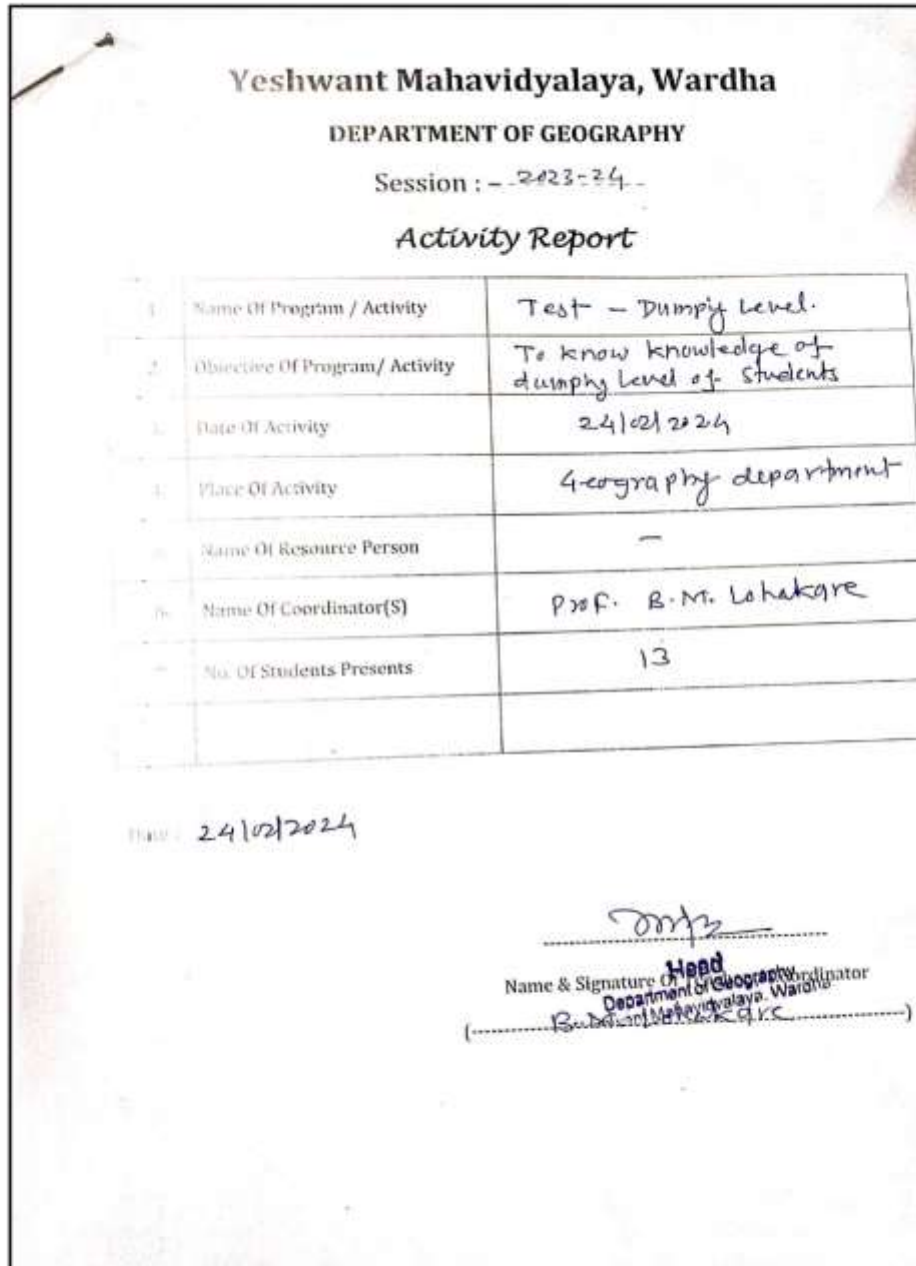 Yeshwant Mahavidyalaya, Wardha
DEPARTMENT OF GEOGRAPHY
Session : - 2023-24
Activity Report
1. Name Of Program / Activity Test - Dumpy Level.
2. Objective Of Program/ Activity To know knowledge of
dumphy Level of Students
3. Date Of Activity 24/02/2024
4. Place Of Activity Geography department
Name Of Resource Person —
6. Name Of Coordinator(S) Prof. B.M. Lohakare
No. Of Students Presents 13
Date : 24/02/2024
Head
Name & Signature Of Coordinator
Department of Geography
Mahavidyalaya, Wardha
(B.M. Lohakare)